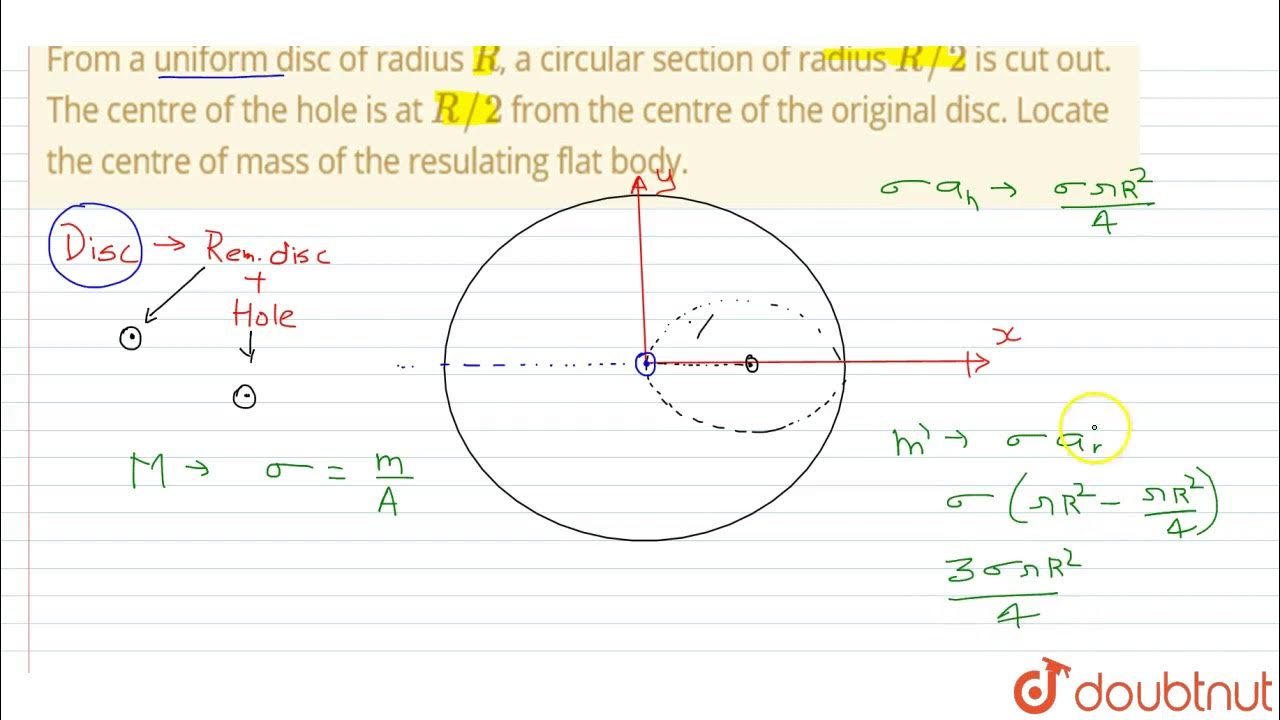 From a uniform disc of radius R, a circular section of radius R/2 is cut out.
The centre of the hole is at R/2 from the centre of the original disc. Locate
the centre of mass of the resulating flat body.
y
σ a_h → σπR²/4
Disc → Rem. disc
+
Hole
x
M → σ = m/A
m' → σ a_r
σ (πR² - πR²/4)
3σπR²/4
doubtnut